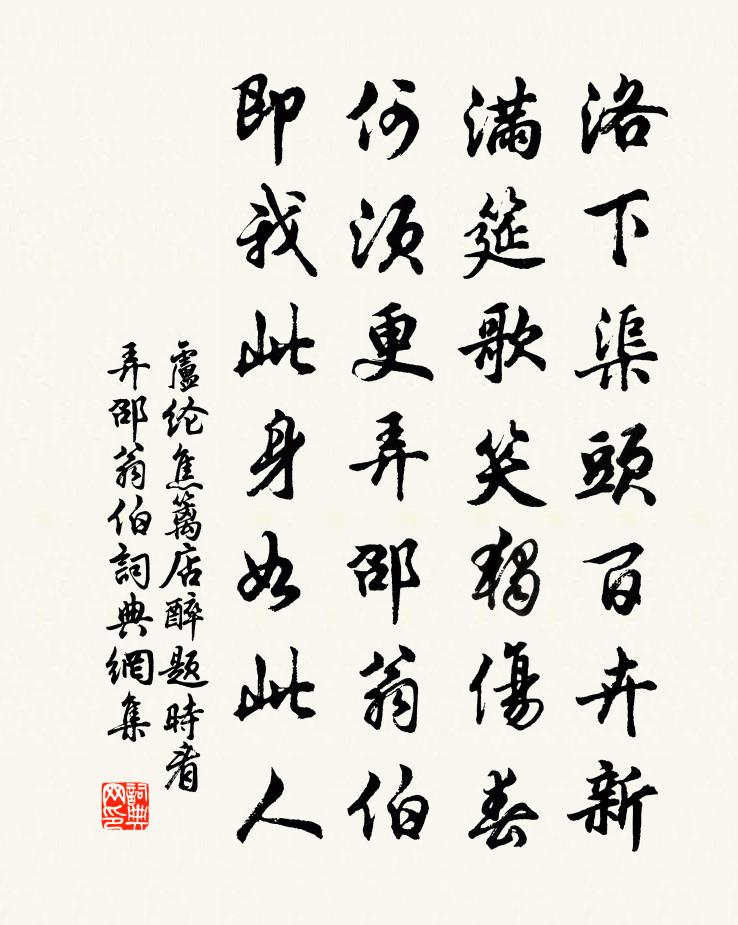 洛下渠頭百卉新
滿筵歌笑獨傷春
何須更弄邵翁伯
即我此身如此人
盧纶焦籬店醉题時看
弄邵翁伯詞典網集
詞典网印